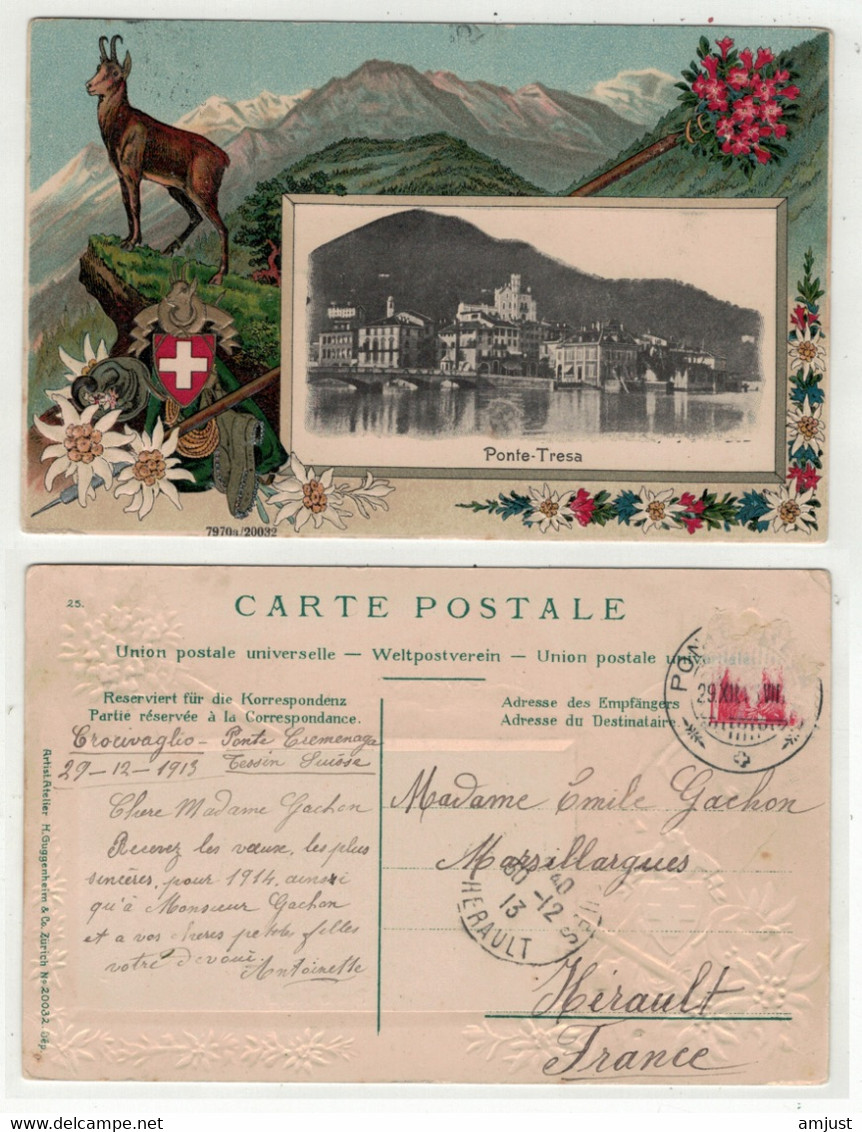 Ponte-Tresa
7970a/20032
25.
CARTE POSTALE
Union postale universelle — Weltpostverein — Union postale universelle
Reserviert für die Korrespondenz
Partie réservée à la Correspondance.
Adresse des Empfängers
Adresse du Destinataire
29.XII.
Crocivaglio - Ponte Cremenaga
29-12-1913 Tessin Suisse
Chère Madame Gachon
Recevez les vœux, les plus
sincères, pour 1914, ainsi
qu'à Monsieur Gachon
et a vos chères petites filles
votre dévouée
Antoinette
Madame Emile Gachon
Marsillargues
Hérault
France
40
30-12
13
HERAULT
Artist. Atelier H. Guggenheim & Co. Zürich No. 20032. Dép.
amjust